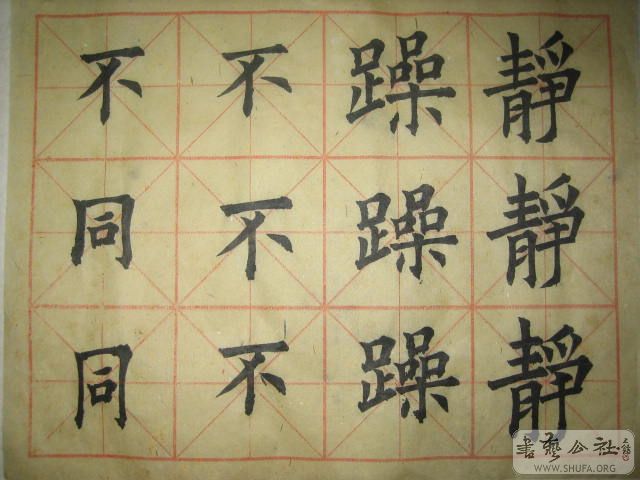 靜靜靜
躁躁躁
不不不
不同同
書藝公社
WWW.SHUFA.ORG